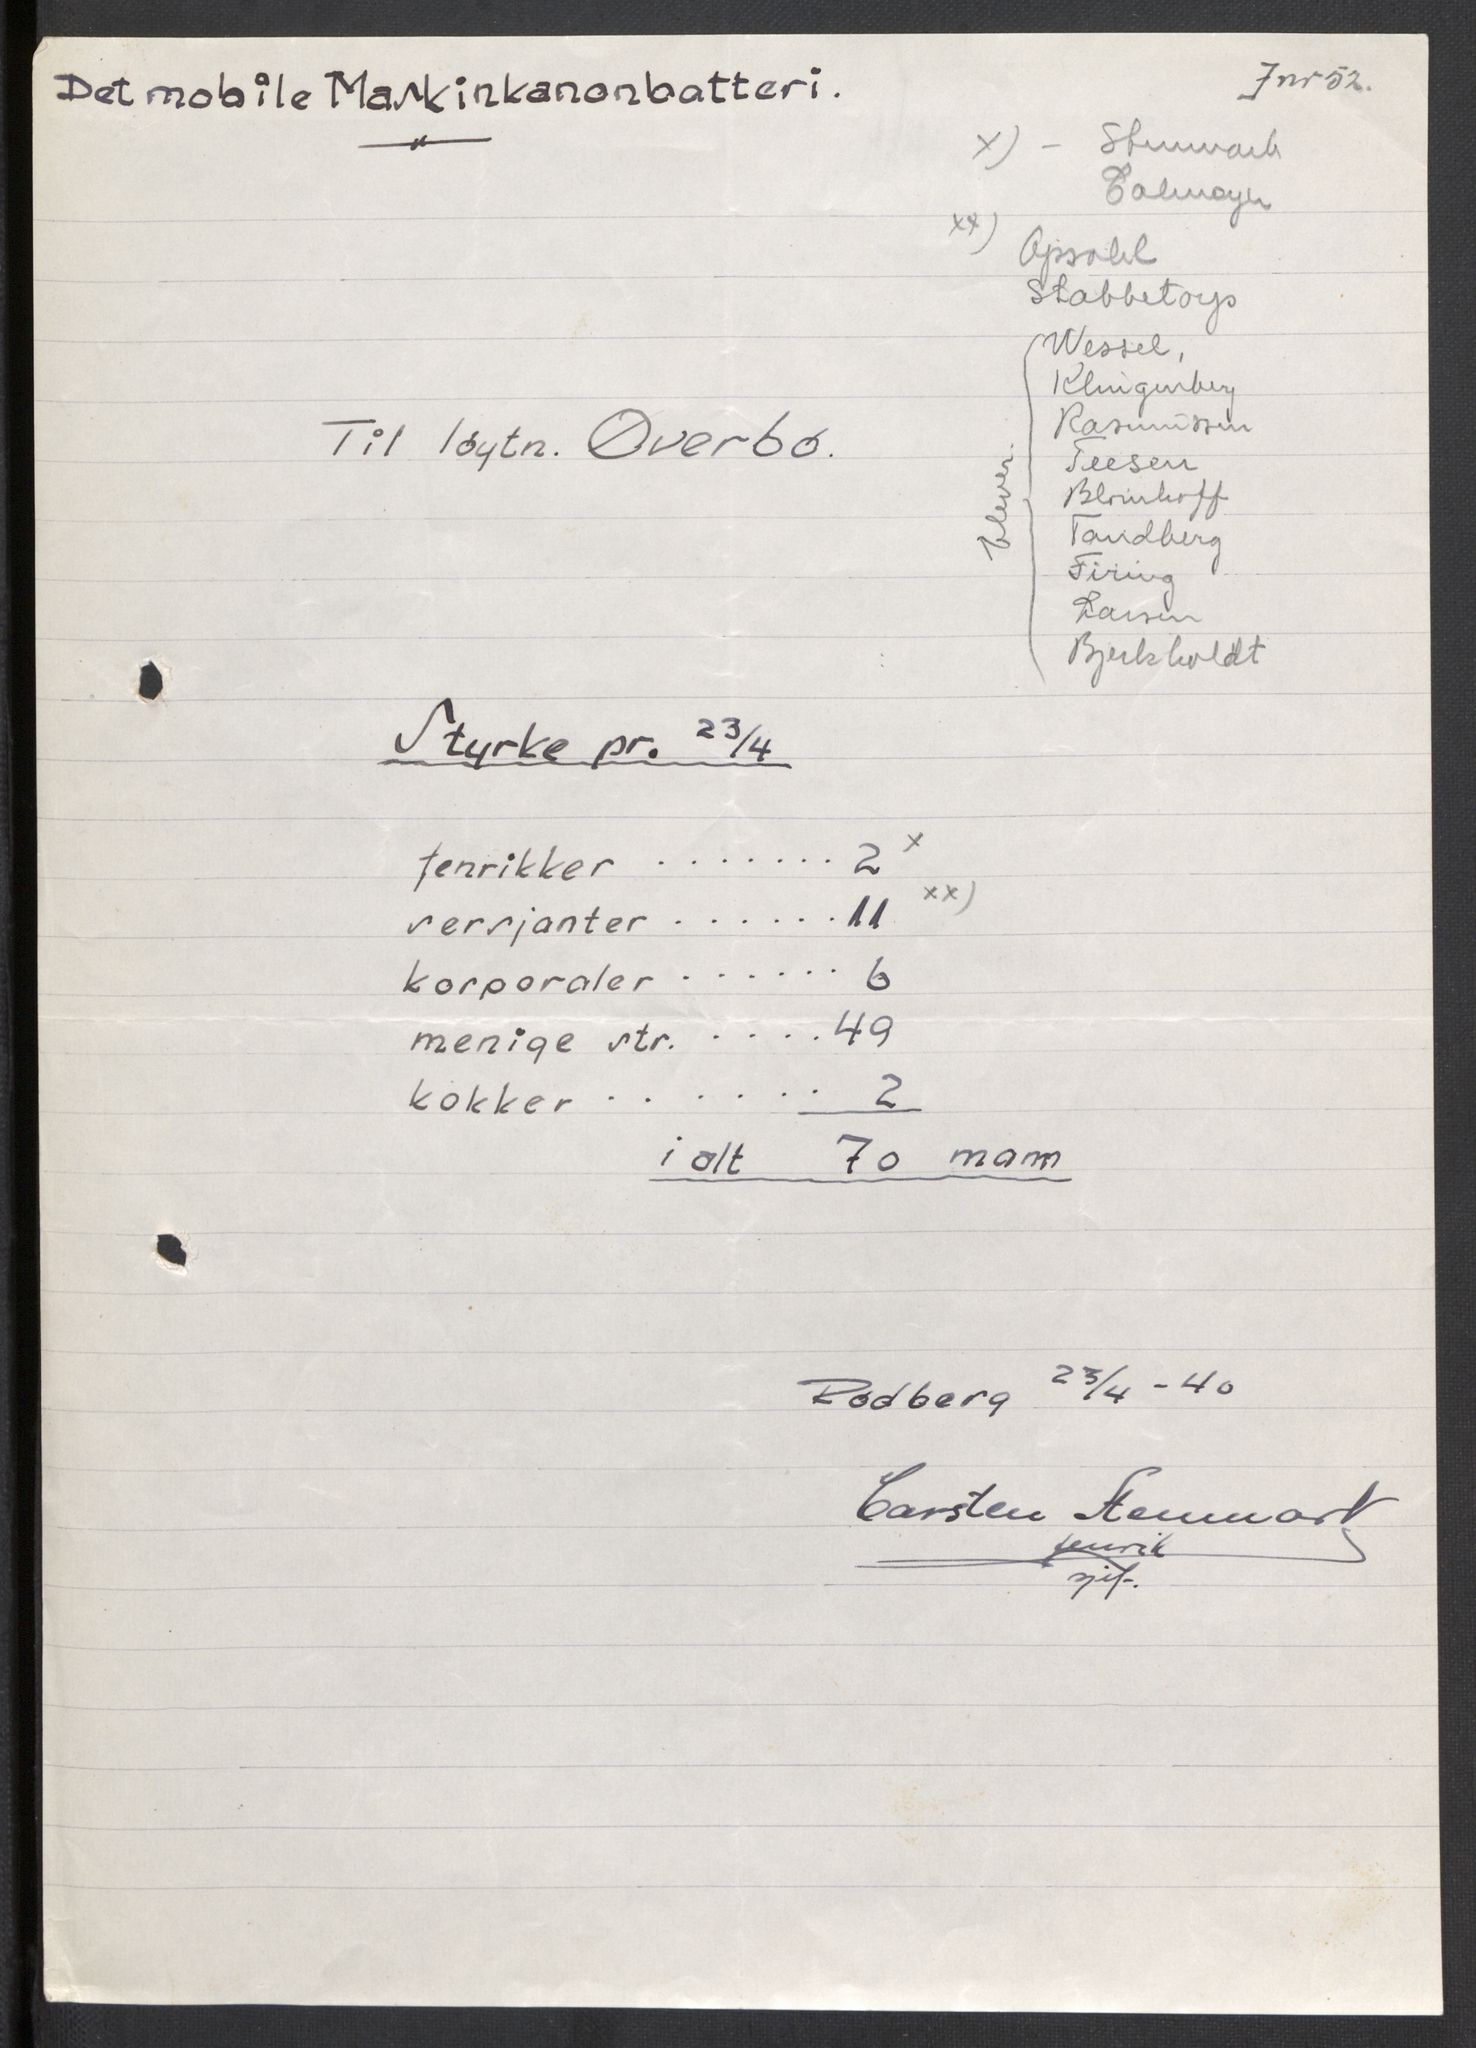 Det mobile Maskinkanonbatteri.
Jnr 52.
x) - Stenmark
Colmeyer
xx)
Opsahl
Stabbetorp
Wessel,
Klingenberg
Rasmussen
Teesen
Blomhoff
Tandberg
Firing
Larsen
Bjerkholdt
elever.
Til løytn. Øverbø.
Styrke pr. 23/4
fenrikker ....... 2 x
sersjanter ...... 11 xx)
korporaler ...... 6
menige str. .... 49
kokker ...... 2
i alt 70 mann
Rødberg 23/4 - 40
Carsten Stenmark
fenrik
sjef.